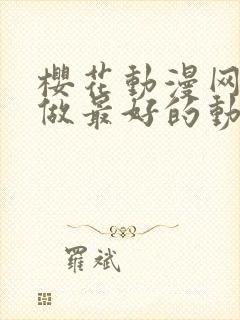 櫻花動漫网
做最好的動
羅斌